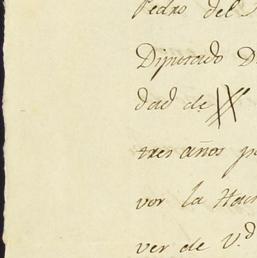 Pedro del
Diputado D
dad de
tres años p
vor la Ha
ver de V.d